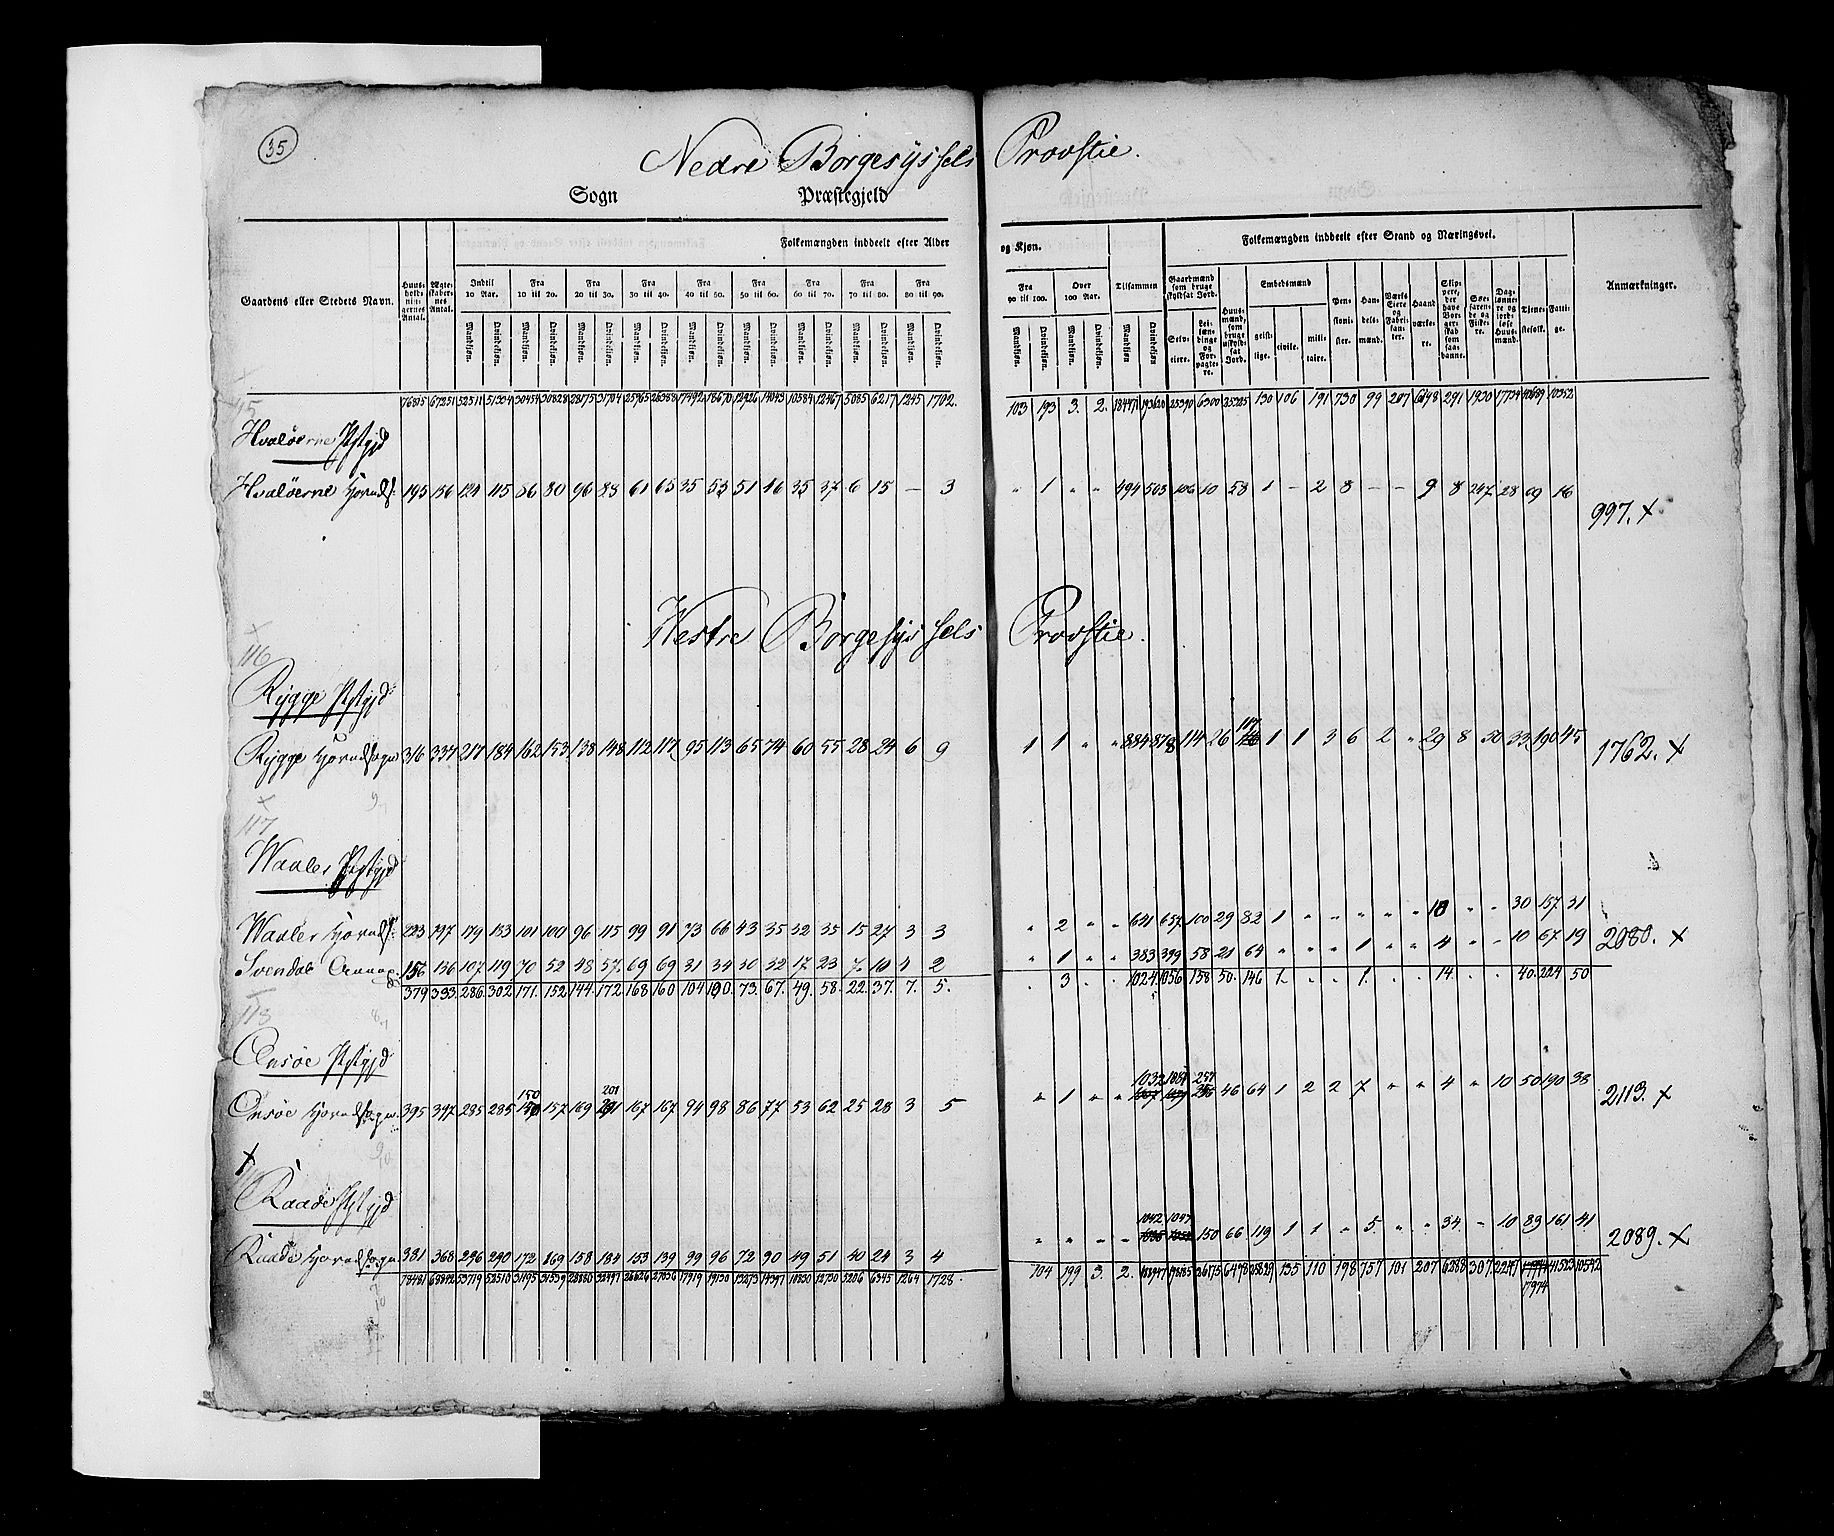 35
Nedre Borgesyssels Provstie.
Sogn Præstegjeld
Folkemængden inddeelt efter Alder og Kjøn. Folkemængden inddeelt efter Stand og Næringsvei.
Gaardens eller Stedets Navn. Huus-holdningernes Antal. Ægteskabernes Antal. Indtil 10 Aar. Fra 10 til 20. Fra 20 til 30. Fra 30 til 40. Fra 40 til 50. Fra 50 til 60. Fra 60 til 70. Fra 70 til 80. Fra 80 til 90. Fra 90 til 100. Over 100 Aar. Tilsammen Gaardmænd som bruge skyldsat Jord. Huusmænd, som bruge uskyldsat Jord. Embedsmænd Pensionister. Handelsmænd. Værks Eiere og Fabrikanter. Haandværkere. Skippere, der have Borgerskab som saadanne. Søefarende og Fiskere. Daglønnere og jordløse Huusmænd. Tjenestefolk. Fattige. Anmærkninger.
Mandkjøn. Qvindekjøn. Mandkjøn. Qvindekjøn. Mandkjøn. Qvindekjøn. Mandkjøn. Qvindekjøn. Mandkjøn. Qvindekjøn. Mandkjøn. Qvindekjøn. Mandkjøn. Qvindekjøn. Mandkjøn. Qvindekjøn. Mandkjøn. Qvindekjøn. Mandkjøn. Qvindekjøn. Mandkjøn. Qvindekjøn. Mandkjøn Qvindekjøn. Selveiere. Leilændinge og Forpagtere. geistlige. civile. militaire.
76815 67251 52511 51304 30454 30828 28175 31704 25965 26388 17492 18670 12926 14043 10384 12467 5085 6217 1245 1702. 103 193 3. 2. 130 106 191 730 99 207 291 10352
Hvaløerne Pstgjd
Hvaløerne Hovads: 195 156 124 115 86 80 96 88 61 65 35 53 51 46 35 37 6 15 — 3 " 1 " " 494 503 106 10 58 1 – 2 8 – – 9 8 247 28 69 16
997. +
Vestre Borgesyssels Provstie.
116
Rygge Pstgjd:
Rygge Hovedsogn 316 337 217 184 162 153 138 148 112 117 95 113 65 74 60 55 28 24 6 9 1 1 " " 884 878 114 26 117 1 1 3 6 2 " 29 8 30 33 190 45 1762. +
117
Waaler Pstgjd
Waaler Hovads: 223 197 179 183 101 100 96 115 99 91 73 66 43 35 32 35 15 27 3 3 " 2 " " 641 657 100 29 82 1 " " " " " 10 " " 30 157 31
Svendal Annex: 156 136 107 119 70 52 48 57 69 69 31 34 30 32 17 23 7 10 4 2 " 1 " " 383 399 58 21 64 " " " 1 " " 4 " " 10 67 19 2080. +
379 333 286 302 171. 152 144 172 168 160 104 100. 73. 67. 49. 58. 22. 37. 7. 5. " 3 " " 1024 1056 158 50. 146 1. " " 1. " " 14. " " 40. 224 50
118
Onsøe Pstgjd
Onsøe Hovedsogn 395 397 285 285 150 157 169 201 167 167 94 98 86 77 53 62 25 28 3 5 " 1 " " 1032 1081 257 46 64 1 2 2 7 " " 4 " 10 50 190 38 2113. +
Raade Pstgjd
Raade Hovedsogn 381 368 296 290 172 169 158 184 153 139 99 96 72 90 49 51 40 24 3 4 " " " " 1042 1047 150 66 119 1 1 " 5. " " 34. – 10 89 161 41 2089. +
78481 68842 53719 52510 31195 31539 28880 32497 26626 27036 17919 19130 13273 14397 10830 12730 5206 6345 1264 1728. 104 199 3. 2. 26175 6498 135 110 198 757 101 207 6288 307 2247 17974 41523 10542